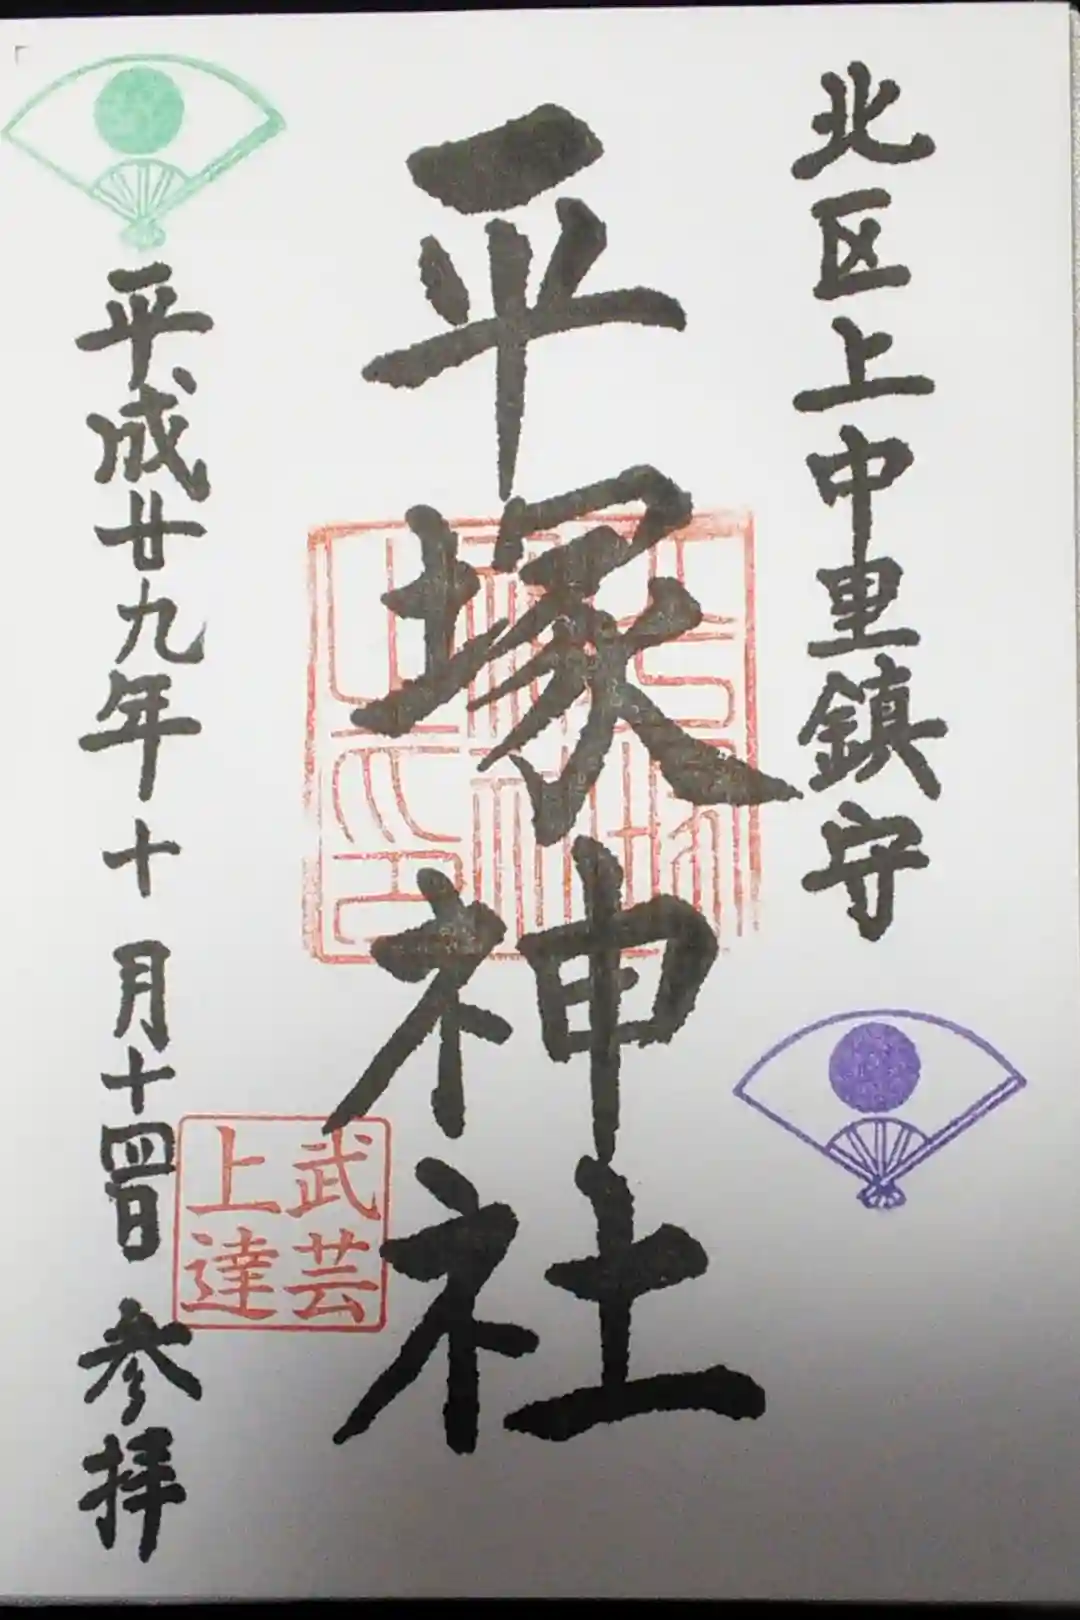 北区上中里鎮守
平塚神社
武芸
上達
平成廿九年十月十四日参拝